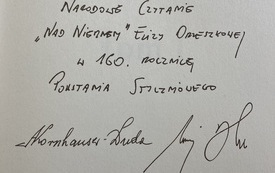 NARODOWE CZYTANIE
„NAD NIEMNEM” ELIZY ORZESZKOWEJ
W 160. ROCZNICĘ
POWSTANIA STYCZNIOWEGO
AKornhauser-Duda